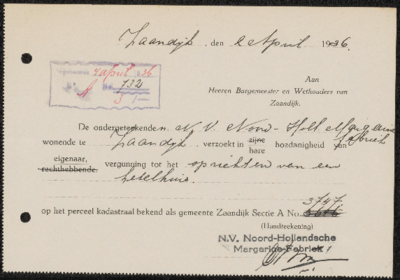 Zaandijk, den 2 April 1936.
4 April 36
732
Aan
Heeren Burgemeester en Wethouders van
Zaandijk.
De ondergeteekende n N.V. Noord-Holl. Margarine
fabriek
wonende te Zaandijk verzoekt in zijne hoedanigheid van
hare
eigenaar, vergunning tot het oprichten van een
rechthebbende:
ketelhuis.
op het perceel kadastraal bekend als gemeente Zaandijk Sectie A No. 3747
(Handteekening)
N.V. Noord-Hollandsche
Margarine-Fabriek